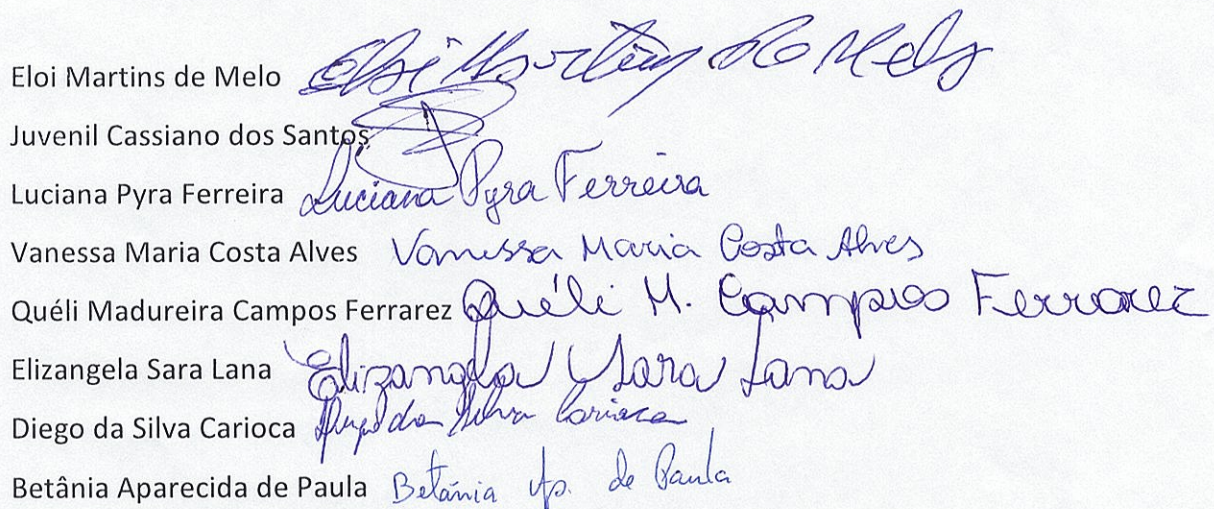 Eloi Martins de Melo Eloi Martins de Melo
Juvenil Cassiano dos Santos
Luciana Pyra Ferreira Luciana Pyra Ferreira
Vanessa Maria Costa Alves Vanessa Maria Costa Alves
Quéli Madureira Campos Ferrarez Quéli M. Campos Ferrarez
Elizangela Sara Lana Elizangela Sara Lana
Diego da Silva Carioca Diego da Silva Carioca
Betânia Aparecida de Paula Betânia Ap. de Paula